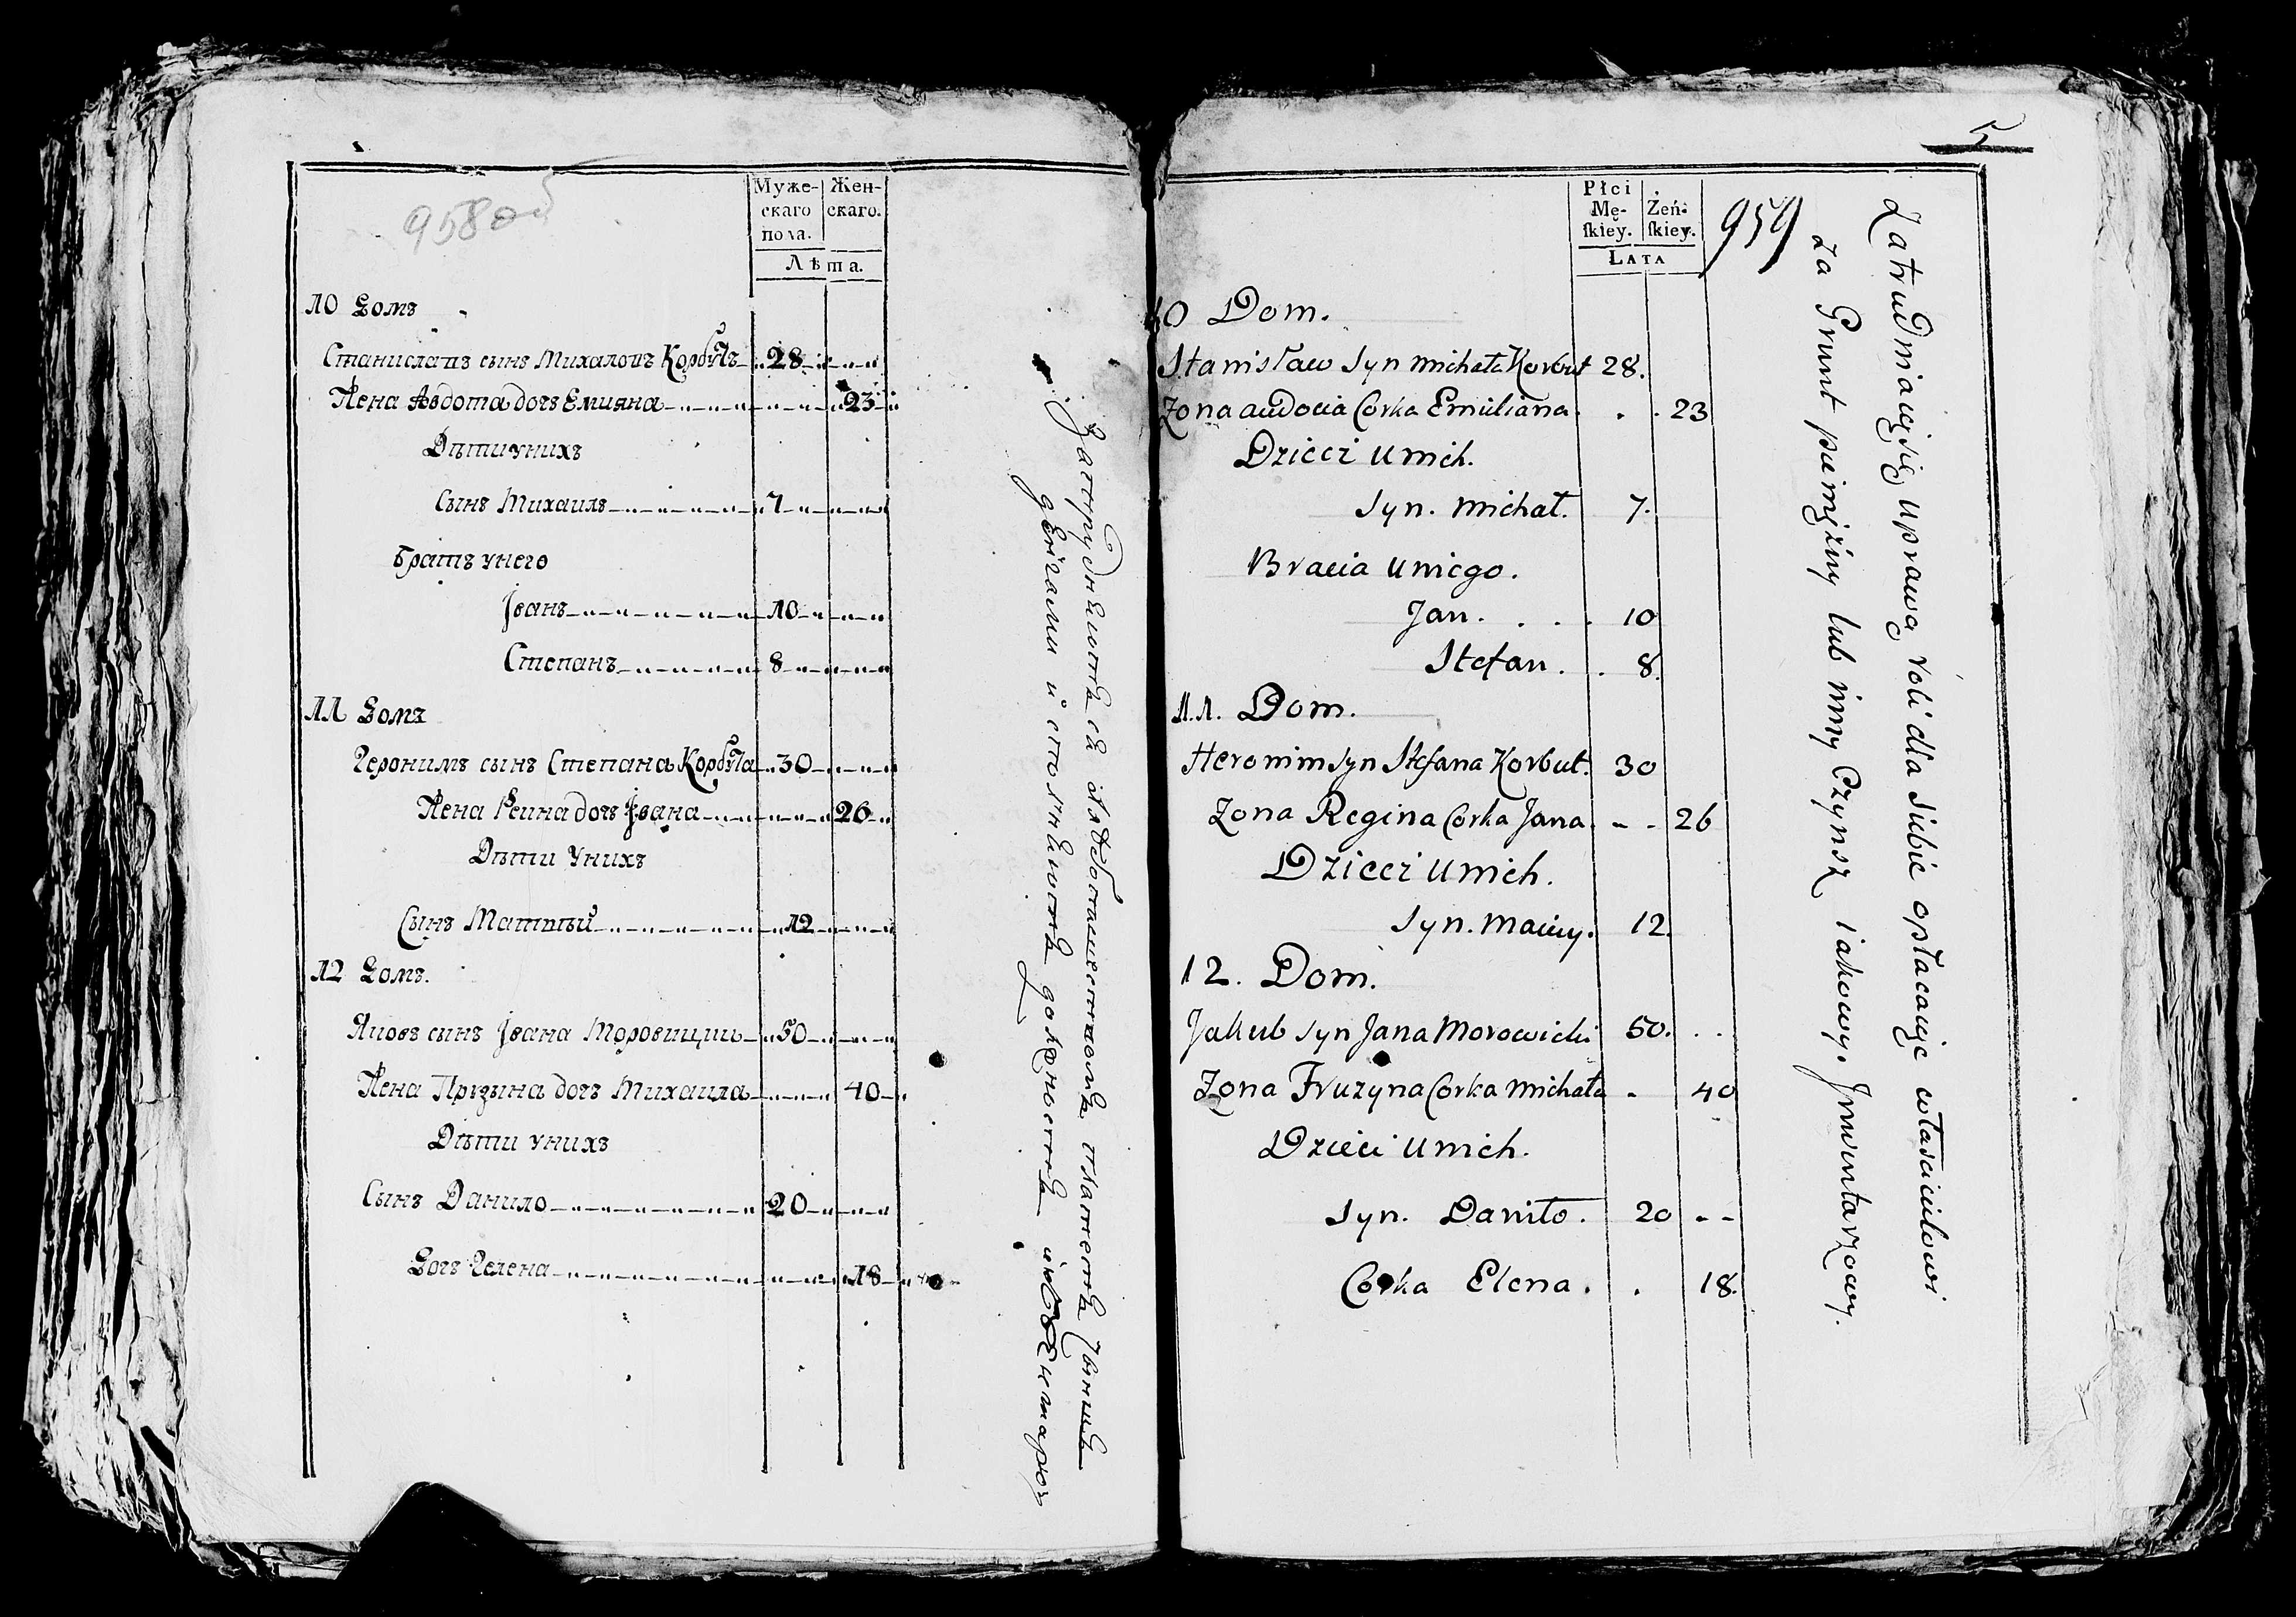 958 об
Муже-
скаго
пола.
Жен-
скаго.
Лѣта.
10 Домъ
Станиславъ сынъ Михаловъ Корбутъ 28
Жена Авдота дочь Емиляна 23
Дѣти унихъ
Сынъ Михаилъ 7
Братъ унего
Іванъ 10
Степанъ 8
11 Домъ
Геронимъ сынъ Степана Корбута 30
Жена Реина дочь Івана 26
Дѣти унихъ
Сынъ Матвѣй 12
12 Домъ.
Яковъ сынъ Івана Моровицкь 50
Жена Прузына дочь Михаила 40
Дѣти унихъ
Сынъ Данило 20
Дочь Гелена 18
5
959
Płci
Mę-
ſkiey.
Żeń-
ſkiey.
LATA
10 Dom.
Stanisław Syn Michała Korbut 28.
Zona audocia Corka Emiliana 23
Dzieci unich.
Syn. Michał. 7.
Bracia uniego.
Jan. 10
Stefan. 8.
11. Dom.
Heronim Syn Stefana Korbut. 30
Zona Regina Corka Jana 26
Dzieci unich.
Syn. Maciey. 12.
12. Dom.
Jakub Syn Jana Morowicki 50.
Zona Fruzyna Corka Michała 40
Dzieci unich.
Syn. Daniło. 20
Corka Elena. 18.
Zatrudniaiący się uprawą roli dla siebie opłacaiąc właścicielowi
za Grunt pieniężny lub inny Czynsz iakowy. Inwentarzowy.